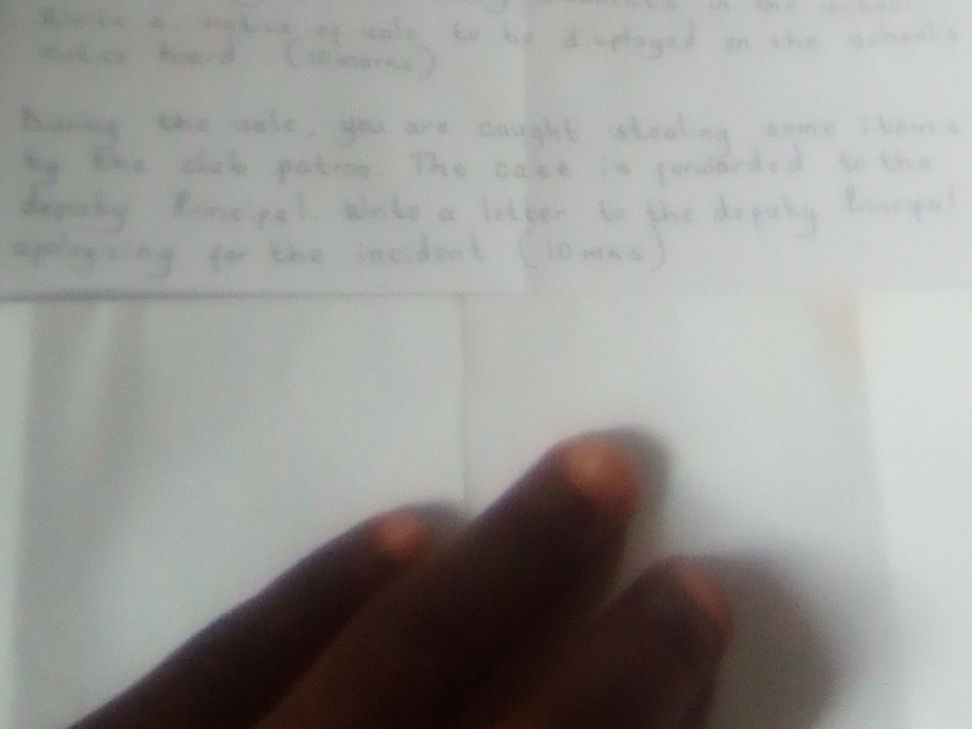 students in the school
Write a notice of sale to be displayed on the schools
notice board (10 marks)
During the sale, you are caught stealing some items
by the club patron. The case is forwarded to the
deputy Principal. Write a letter to the deputy Principal
apologizing for the incident (10 mks)